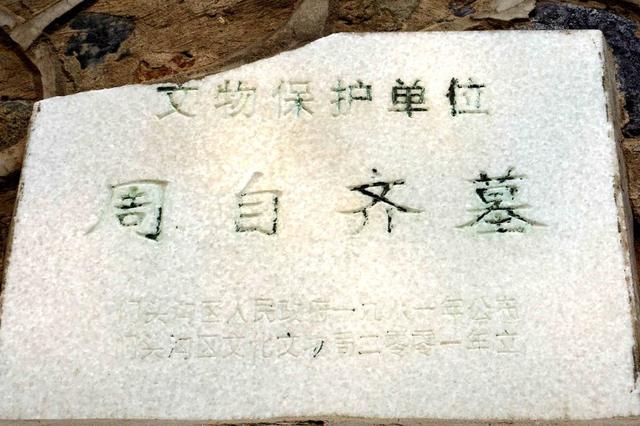 文物保护单位
周自齐墓
门头沟区人民政府一九八一年公布
门头沟区文化文物局二零零一年立